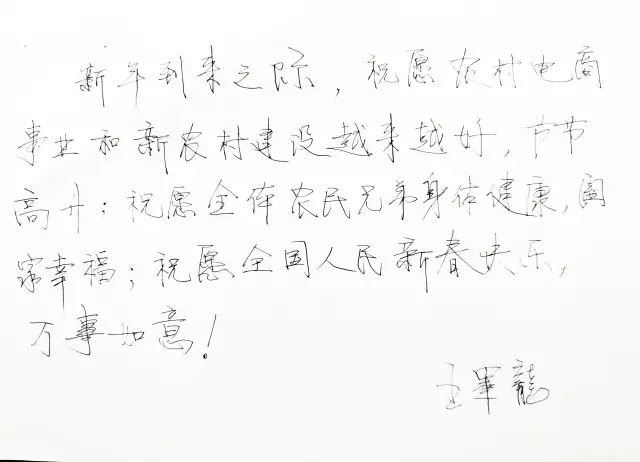 新年到来之际，祝愿农村电商
事业和新农村建设越来越好，节节
高升；祝愿全体农民兄弟身体健康，阖
家幸福；祝愿全国人民新春快乐，
万事如意！
王军龍